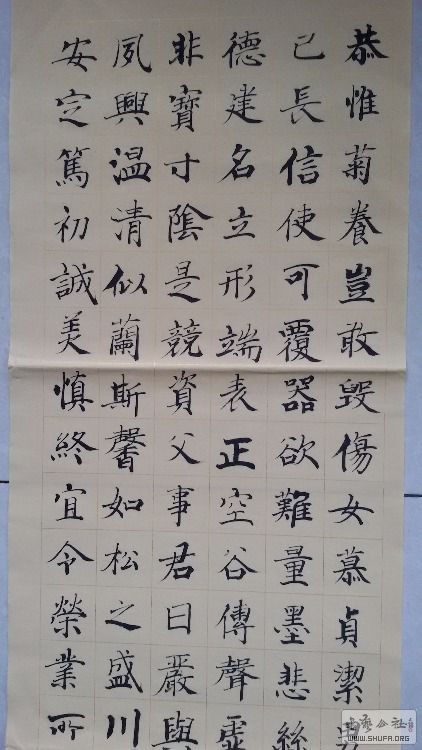 恭惟菊養豈敢毀傷女慕貞潔
己長信使可覆器欲難量墨悲絲
德建名立形端表正空谷傳聲虛
非寶寸陰是競資父事君曰嚴與
夙興温清似蘭斯馨如松之盛川
安定篤初誠美慎終宜令榮業所
书艺公社
WWW.SHUFA.ORG